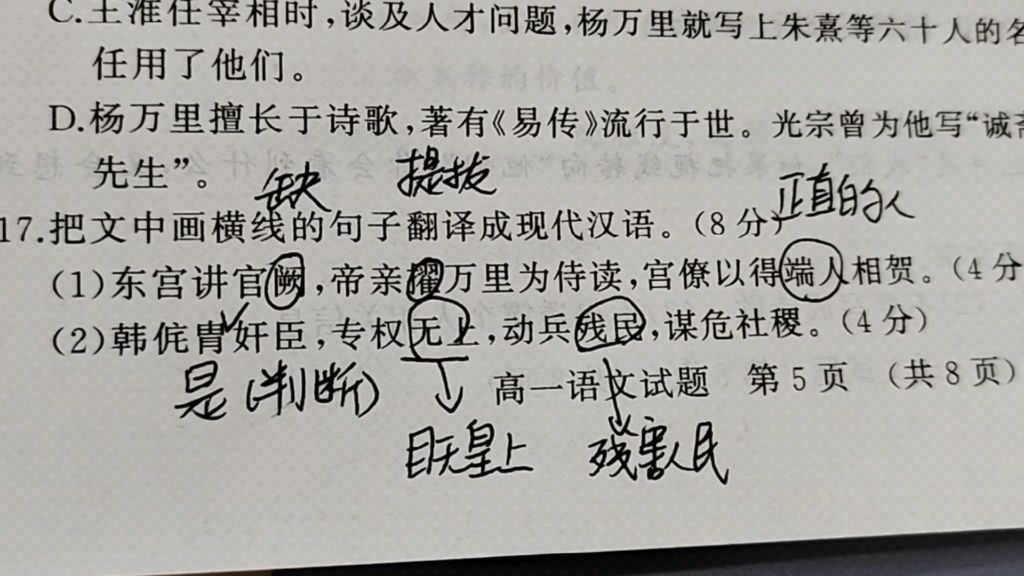 C.王淮任宰相时,谈及人才问题,杨万里就写上朱熹等六十人的名
任用了他们。
D.杨万里擅长于诗歌,著有《易传》流行于世。光宗曾为他写“诚斋
先生”。
缺 提拔 正直的人
17.把文中画横线的句子翻译成现代汉语。(8分)
(1)东宫讲官阙,帝亲擢万里为侍读,宫僚以得端人相贺。(4分
(2)韩侂胄奸臣,专权无上,动兵残民,谋危社稷。(4分)
是(判断)
高一语文试题 第5页 (共8页)
目无皇上 残害人民